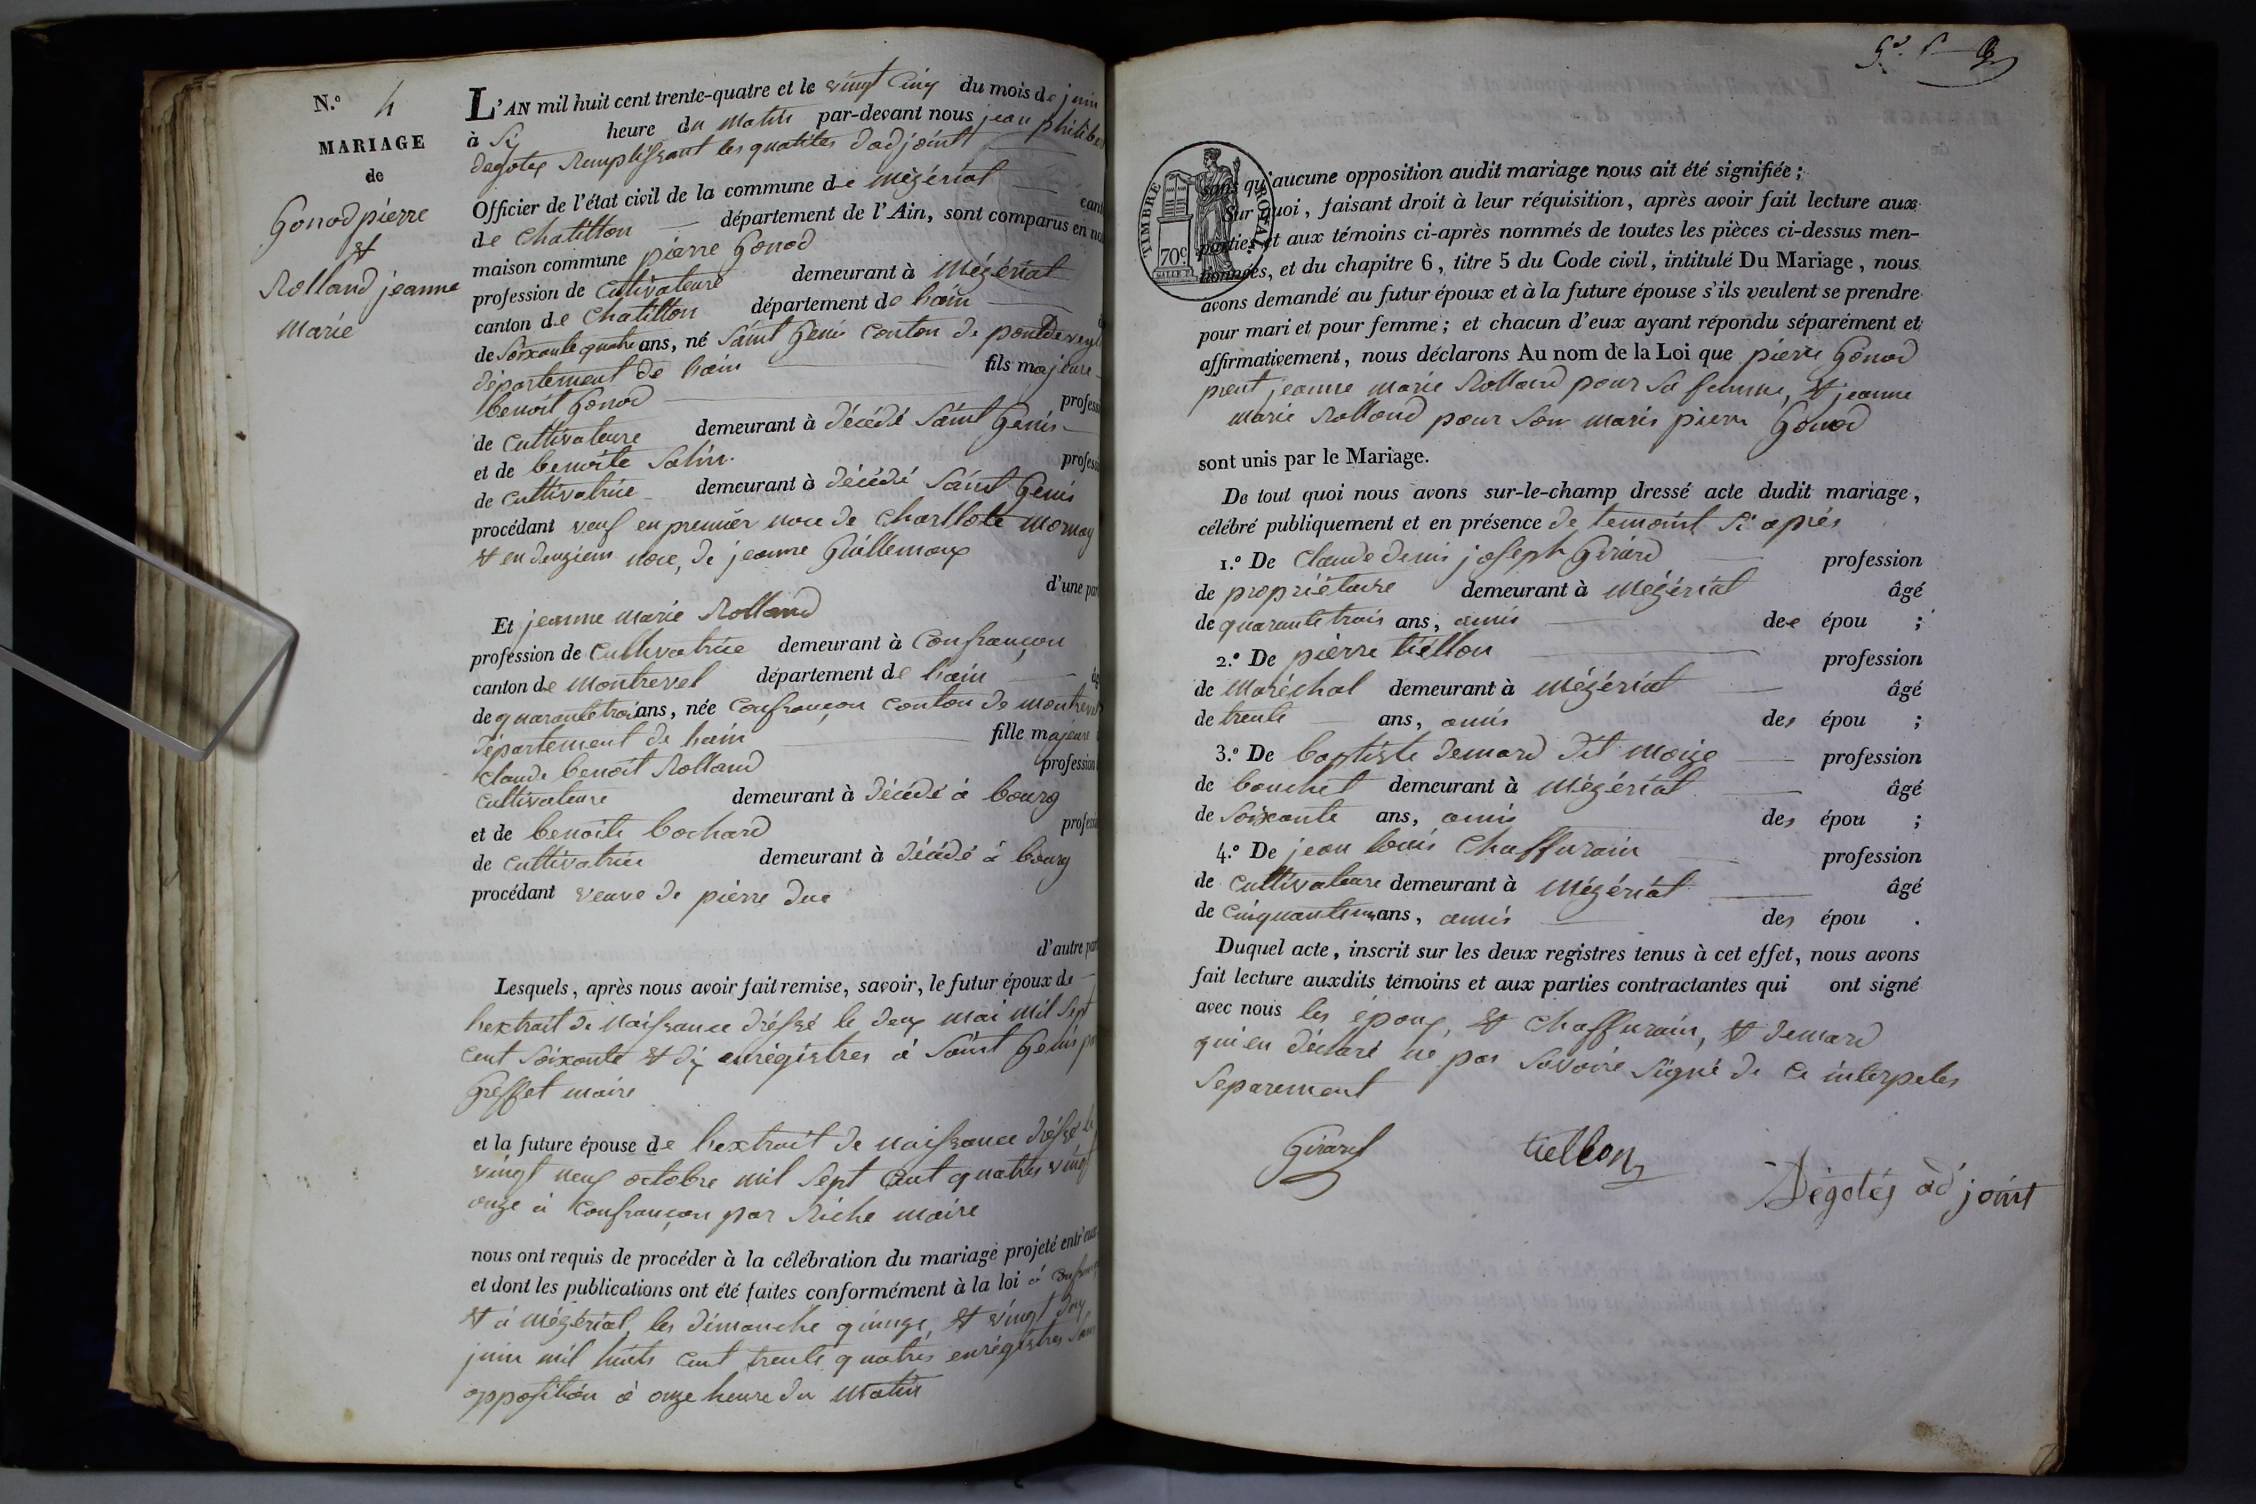 N.o 4
MARIAGE
de
Gonod pierre
et
Rolland jeanne
marie
L'AN mil huit cent trente-quatre et le vingt Cinq du mois de juin
à Six heure du Matin par-devant nous jean philibe
degotex Remplissant les quatites dadjoint
Officier de l'état civil de la commune de Mézériat cant
de Chatillon département de l'Ain, sont comparus en no
maison commune pierre Gonod
profession de Cultivateure demeurant à Mézériat
canton de Chatillon département de hain
de Soixante quatre ans, né Saint Genis Conton de pontdeveyl
département de hain fils majeure
benoit Gonod profess
de Cultivateure demeurant à décédé Saint Genis
et de benoite Salin professi
de Cultivatrice demeurant à décédé Saint Genis
procédant veuf en premier noce de Charllote Mornay
et en deuxiem noce, de jeanne Guillemoux
d'une par
Et jeanne Marie Rolland
profession de Cultivatrice demeurant à Confrançon
canton de Montrevel département de hain
de quarante trois ans, née Confrançon Conton de Montrevel
département de hain fille majeure
Claude benoit Rolland profession
Cultivateure demeurant à décédé à bourg
et de benoite bochard professi
de Cultivatrice demeurant à décédé à bourg
procédant veuve de pierre duc
d'autre part
Lesquels, après nous avoir fait remise, savoir, le futur époux de
hextrait de Naissance dréssé le deux Mai Mil Sept
Cent Soixante et dix enrégistres à Saint Genis par
Greffet maire
et la future épouse de hextrait de Naissance dréssé le
vingt neuf octobre mil Sept Cent quatres vingt
onze à Confrançon par Riche maire
nous ont requis de procéder à la célébration du mariage projeté entr'eux
et dont les publications ont été faites conformément à la loi à Confranç
et à Mézériat les dimanche quinze, et vingt deux
juin mil huits Cent trente quatres enrégistres Sans
opposition à onze heure du Matin
TIMBRE ROYAL
70c
sans qu'aucune opposition audit mariage nous ait été signifiée;
Sur quoi, faisant droit à leur réquisition, après avoir fait lecture aux
parties et aux témoins ci-après nommés de toutes les pièces ci-dessus men-
tionnées, et du chapitre 6, titre 5 du Code civil, intitulé Du Mariage, nous
avons demandé au futur époux et à la future épouse s'ils veulent se prendre
pour mari et pour femme; et chacun d'eux ayant répondu séparément et
affirmativement, nous déclarons Au nom de la Loi que pierre Gonod
prent jeanne marie Rolland pour Sa femme, et jeanne
marie Rolland pour Son maris pierre Gonod
sont unis par le Mariage.
De tout quoi nous avons sur-le-champ dressé acte dudit mariage,
célébré publiquement et en présence de temoint Si aprés
1.o De Claude denis joseph Girard profession
de propriétaire demeurant à Mézériat âgé
de quarante trois ans, amis des épou ;
2.o De pierre tiéllon profession
de Maréchal demeurant à Mézériat âgé
de trente ans, amis des épou ;
3.o De baptiste demard dit moize profession
de bouchet demeurant à Mézériat âgé
de Soixante ans, amis des épou ;
4.o De jean louis Chaffurain profession
de Cultivateure demeurant à Mézériat âgé
de Cinquante ans, amis des épou .
Duquel acte, inscrit sur les deux registres tenus à cet effet, nous avons
fait lecture auxdits témoins et aux parties contractantes qui ont signé
avec nous les époux, et Chaffurain, et demard
qui en déclaré ne pas Savoire Signé de Ce interpeles
Separement
Girard tiellon
Dégotéx adjoint